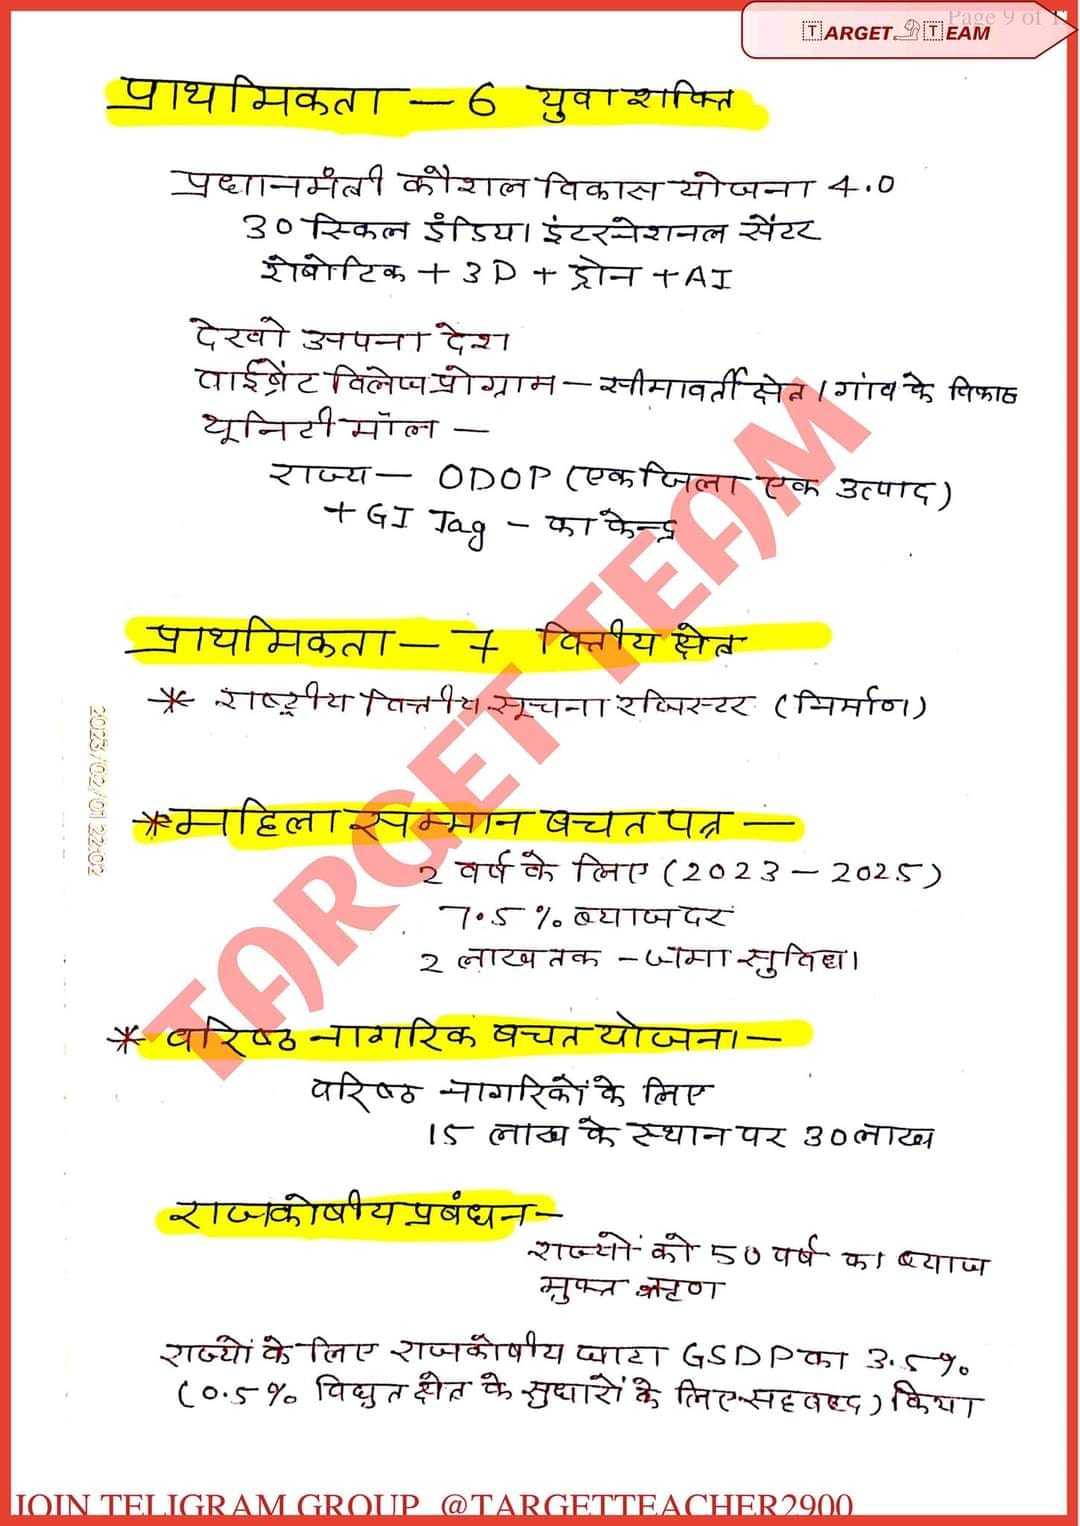 Page 9 of 1
TARGET TEAM
प्राथमिकता - 6 युवा शक्ति
प्रधानमंत्री कौशल विकास योजना 4.0
30 स्किल इंडिया इंटरनेशनल सेंटर
रोबोटिक + 3D + ड्रोन + AI
देखो अपना देश
वाईब्रेंट विलेज प्रोग्राम - सीमावर्ती क्षेत्र / गांव के विकास
यूनिटी मॉल -
राज्य - ODOP (एक जिला एक उत्पाद)
+ GI Tag - का केन्द्र
प्राथमिकता - 7 वित्तीय क्षेत्र
* राष्ट्रीय वित्तीय सूचना रजिस्टर (निर्माण)
* महिला सम्मान बचत पत्र -
2 वर्ष के लिए (2023 - 2025)
7.5% ब्याज दर
2 लाख तक - जमा सुविधा
* वरिष्ठ नागरिक बचत योजना -
वरिष्ठ नागरिकों के लिए
15 लाख के स्थान पर 30 लाख
राजकोषीय प्रबंधन -
राज्यों को 50 वर्ष का ब्याज
मुक्त ऋण
राज्यों के लिए राजकोषीय घाटा GSDP का 3.5%
(0.5% विद्युत क्षेत्र के सुधारों के लिए सहबद्ध) किया
2023/02/01 22:02
TARGET TEAM
JOIN TELIGRAM GROUP @TARGETTEACHER2900